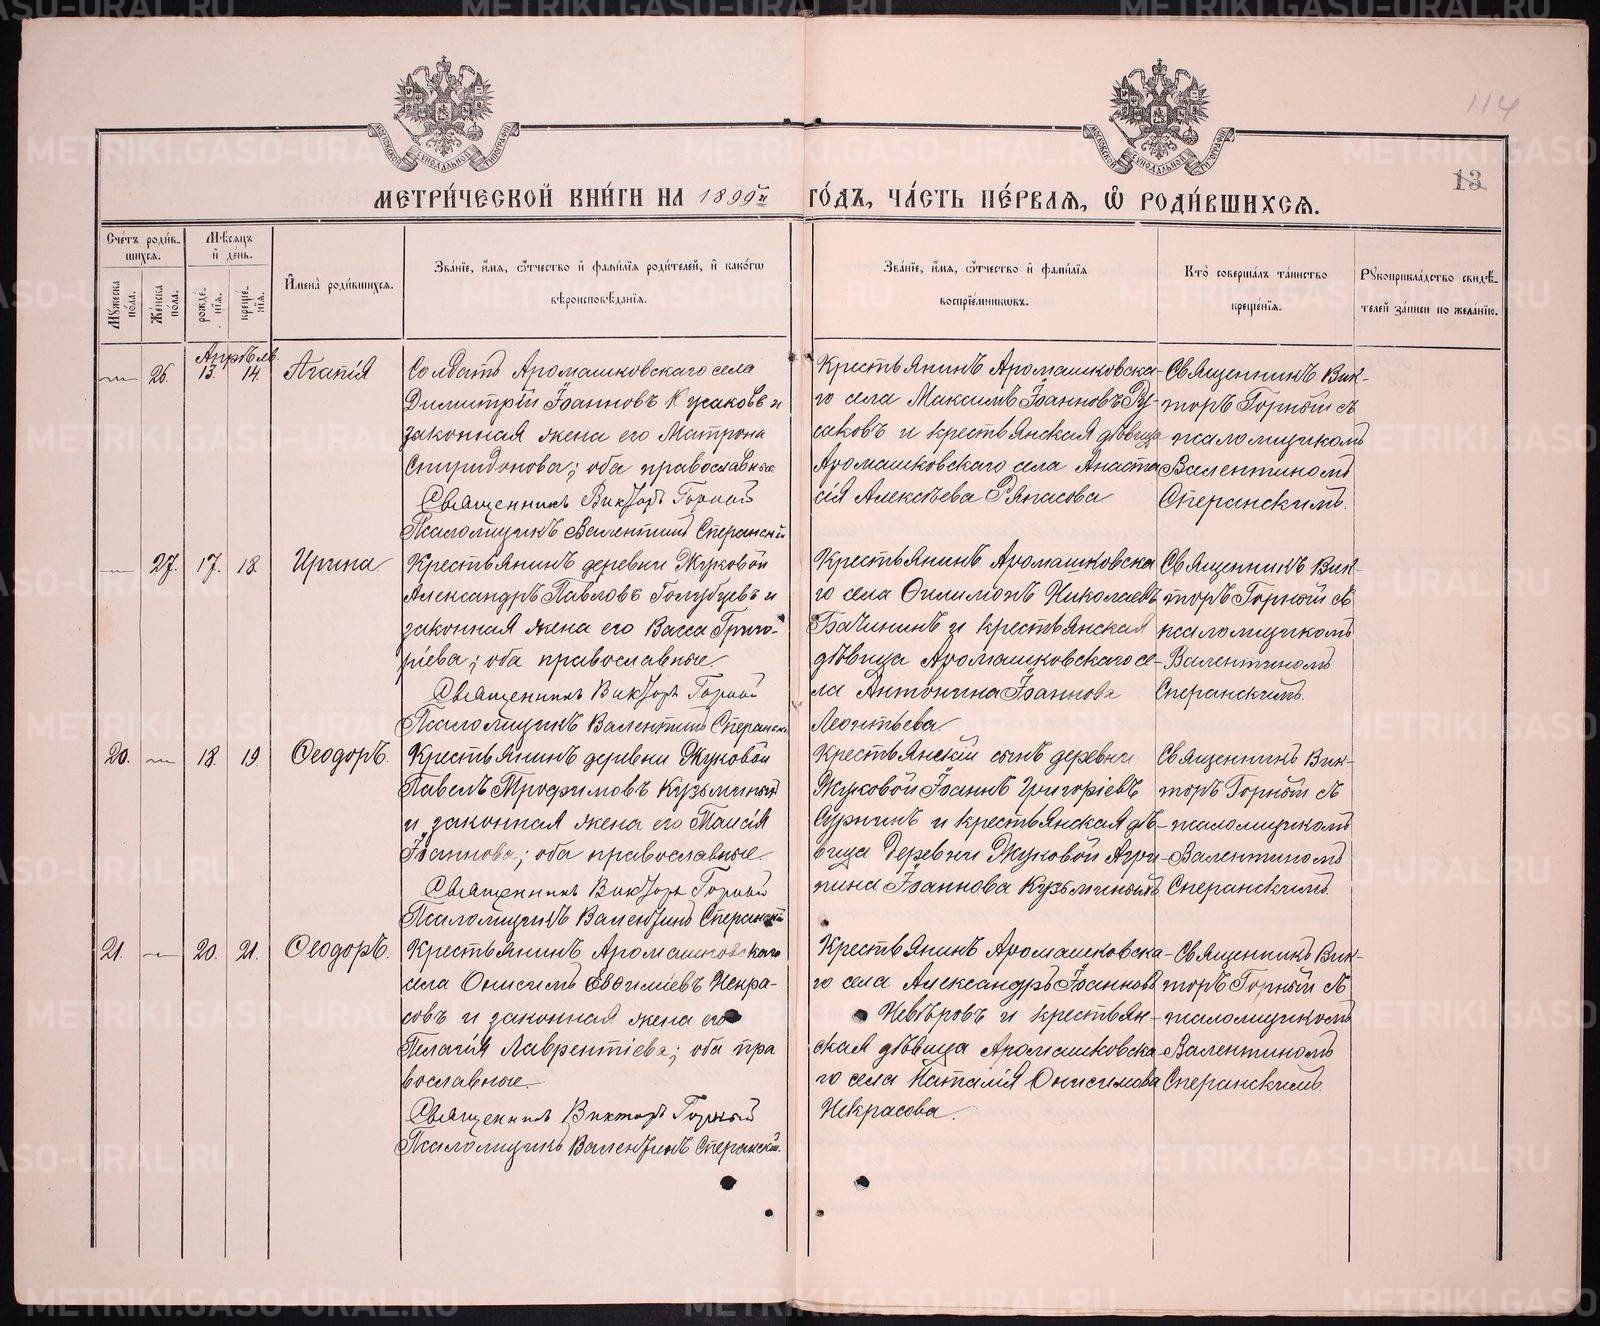 114
13
МЕТРИ́ЧЕСКОЙ КНИ́ГИ НА 1899й ГО́ДЪ, ЧА́СТЬ ПЕ́РВАЯ, Ѡ РОДИ́ВШИХСЯ.
Сче́тъ роди́в-
шихся.
Мѣсяцъ
и день.
Му́жеска
по́ла.
Же́нска
по́ла.
рожде́-
нія.
креще́-
нія.
Имена̀ роди́вшихся.
Зва́ніе, и́мя, ѻ́тчество и фами́лія роди́телей, и како́гѡ
вѣроисповѣ́данія.
Зва́ніе, и́мя, ѻ́тчество и фами́лія
воспріе́мниковъ.
Кто̀ соверша́лъ та́инство
креще́нія.
Рꙋкоприкла́дство свидѣ́-
телей за́писи по жела́нію.
Апрѣль.
26. 13. 14. Агапія
Солдатъ Аромашковскаго села
Димитрій Іоанновъ Русаковъ и
законная жена его Матрона
Спиридонова; оба православные
Священникъ Викторъ Горный
Псаломщикъ Валентинъ Сперанскій
Крестьянинъ Аромашковска-
го села Максимъ Іоанновъ Ру-
саковъ и крестьянская дѣвица
Аромашковскаго села Анаста
сія Алексѣева
Священникъ Вик-
торъ Горный съ
псаломщикомъ
Валентиномъ
Сперанскимъ.
27. 17. 18. Ирина
Крестьянинъ деревни Жуковой
Александръ Павловъ Голубцевъ и
законная жена его Васса Григо-
ріева; оба православные
Священникъ Викторъ Горный
Псаломщикъ Валентинъ Сперанскій
Крестьянинъ Аромашковска
го села Филимонъ Николаевъ
Бачининъ и крестьянская
дѣвица Аромашковскаго се-
ла Антонина Іоаннова
Леонтьева
Священникъ Вик-
торъ Горный съ
псаломщикомъ
Валентиномъ
Сперанскимъ.
20. 18. 19. Ѳеодоръ.
Крестьянинъ деревни Жуковой
Павелъ Трофимовъ Кузьминыхъ
и законная жена его Таисія
Іоаннова; оба православные.
Священникъ Викторъ Горный
Псаломщикъ Валентинъ Сперанскій
Крестьянскій сынъ деревни
Жуковой Іоаннъ Григоріевъ
Суринъ и крестьянская дѣ-
вица деревни Жуковой Агри-
пина Іоаннова Кузьминыхъ
Священникъ Вик-
торъ Горный съ
псаломщикомъ
Валентиномъ
Сперанскимъ.
21. 20. 21. Ѳеодоръ.
Крестьянинъ Аромашковскаго
села Онисимъ Евѳиміевъ Некра-
совъ и законная жена его
Пелагія Лаврентіева; оба пра
вославные.
Священникъ Викторъ Горный
Псаломщикъ Валентинъ Сперанскій.
Крестьянинъ Аромашковска-
го села Александръ Іоанновъ
Невѣровъ и крестьян-
ская дѣвица Аромашковска
го села Наталія Онисимова
Некрасова.
Священникъ Вик-
торъ Горный съ
псаломщикомъ
Валентиномъ
Сперанскимъ.
METRIKI.GASO-URAL.RU